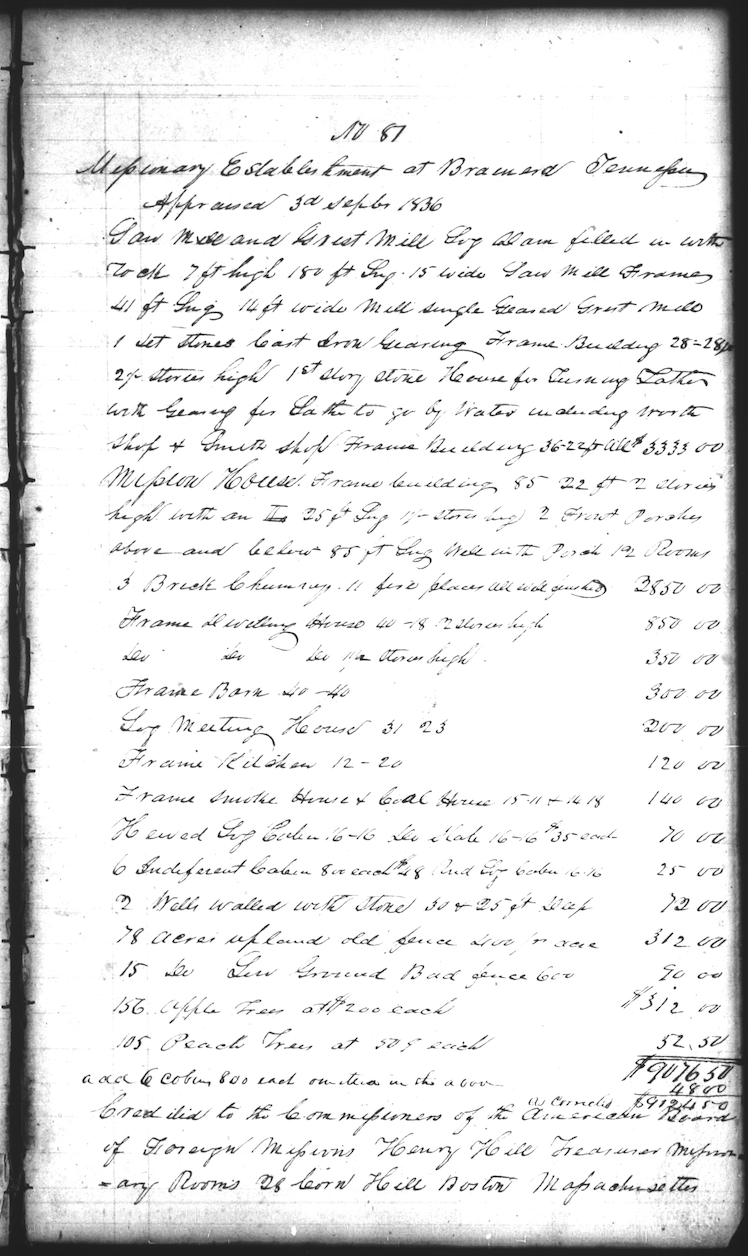 No 81
Missionary Establishment at Brainerd Tennessee
Appraised 3d Septbr 1836
Saw Mill and Grist Mill Log Dam filled in with
rock 7 ft high 180 ft Lng. 15 wide Saw Mill Frame
41 ft Lng 14 ft wide Mill single Geared Grist Mill
1 set Stones Cast Iron Gearing Frame Building 28-28
2½ stories high 1st story stone House for Turning Lathe
with Gearing for Lathe to go by Water including work
shop & Smith shop Frame Building 36-22 ft All $ 3333 00
Mission House. Frame building 85 22 ft 2 stories
high with an 25 ft Lng 1½ stories high 2 Front Porches
above and below 85 ft Lng Well with Porch 12 Rooms
3 Brick Chimneys. 11 fire places all well finished 2850 00
Frame Dwelling House 40-18 2 stories high 850 00
Do Do Do 1½ stories high. 350 00
Frame Barn 40-40 300 00
Log Meeting House 31 23 200 00
Frame Kitchen 12-20 120 00
Frame Smoke House & Coal House 15-11 & 14 18 140 00
Hewed Log Cabin 16-16 Do 16-16 $35 each 70 00
6 Indiferent Cabin 800 each $48 Rnd Log Cabin 16-16 25 00
2 Wells walled with stone 30 & 25 ft Deep 72 00
78 acres upland old fence 400 pr acre 312 00
15 Do Low Ground Bad fence 600 90 00
156 Apple Trees at $200 each $312 00
105 Peach Trees at 50¢ each 52.50
$9076 50
add 6 cabins 800 each omitted in the above 48 00
$9124 50
Credited to the Commissioners of the American Board
of Foreign Missions Henry Hill Treasurer Mission
=ary Rooms 28 Corn Hill Boston Massachusettes